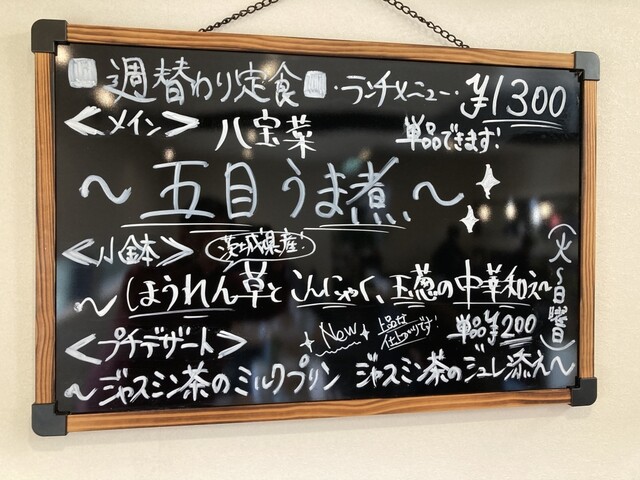 週替わり定食 ・ランチメニュー・ ¥1300
<メイン> 八宝菜 単品できます!
〜五目うま煮〜
<小鉢> 茨城県産!
〜ほうれん草とこんにゃく、玉葱の中華和え〜
<プチデザート> New 上品な仕上がりです! 単品¥200
〜ジャスミン茶のミルクプリン ジャスミン茶のジュレ添え〜
(火〜日曜日)